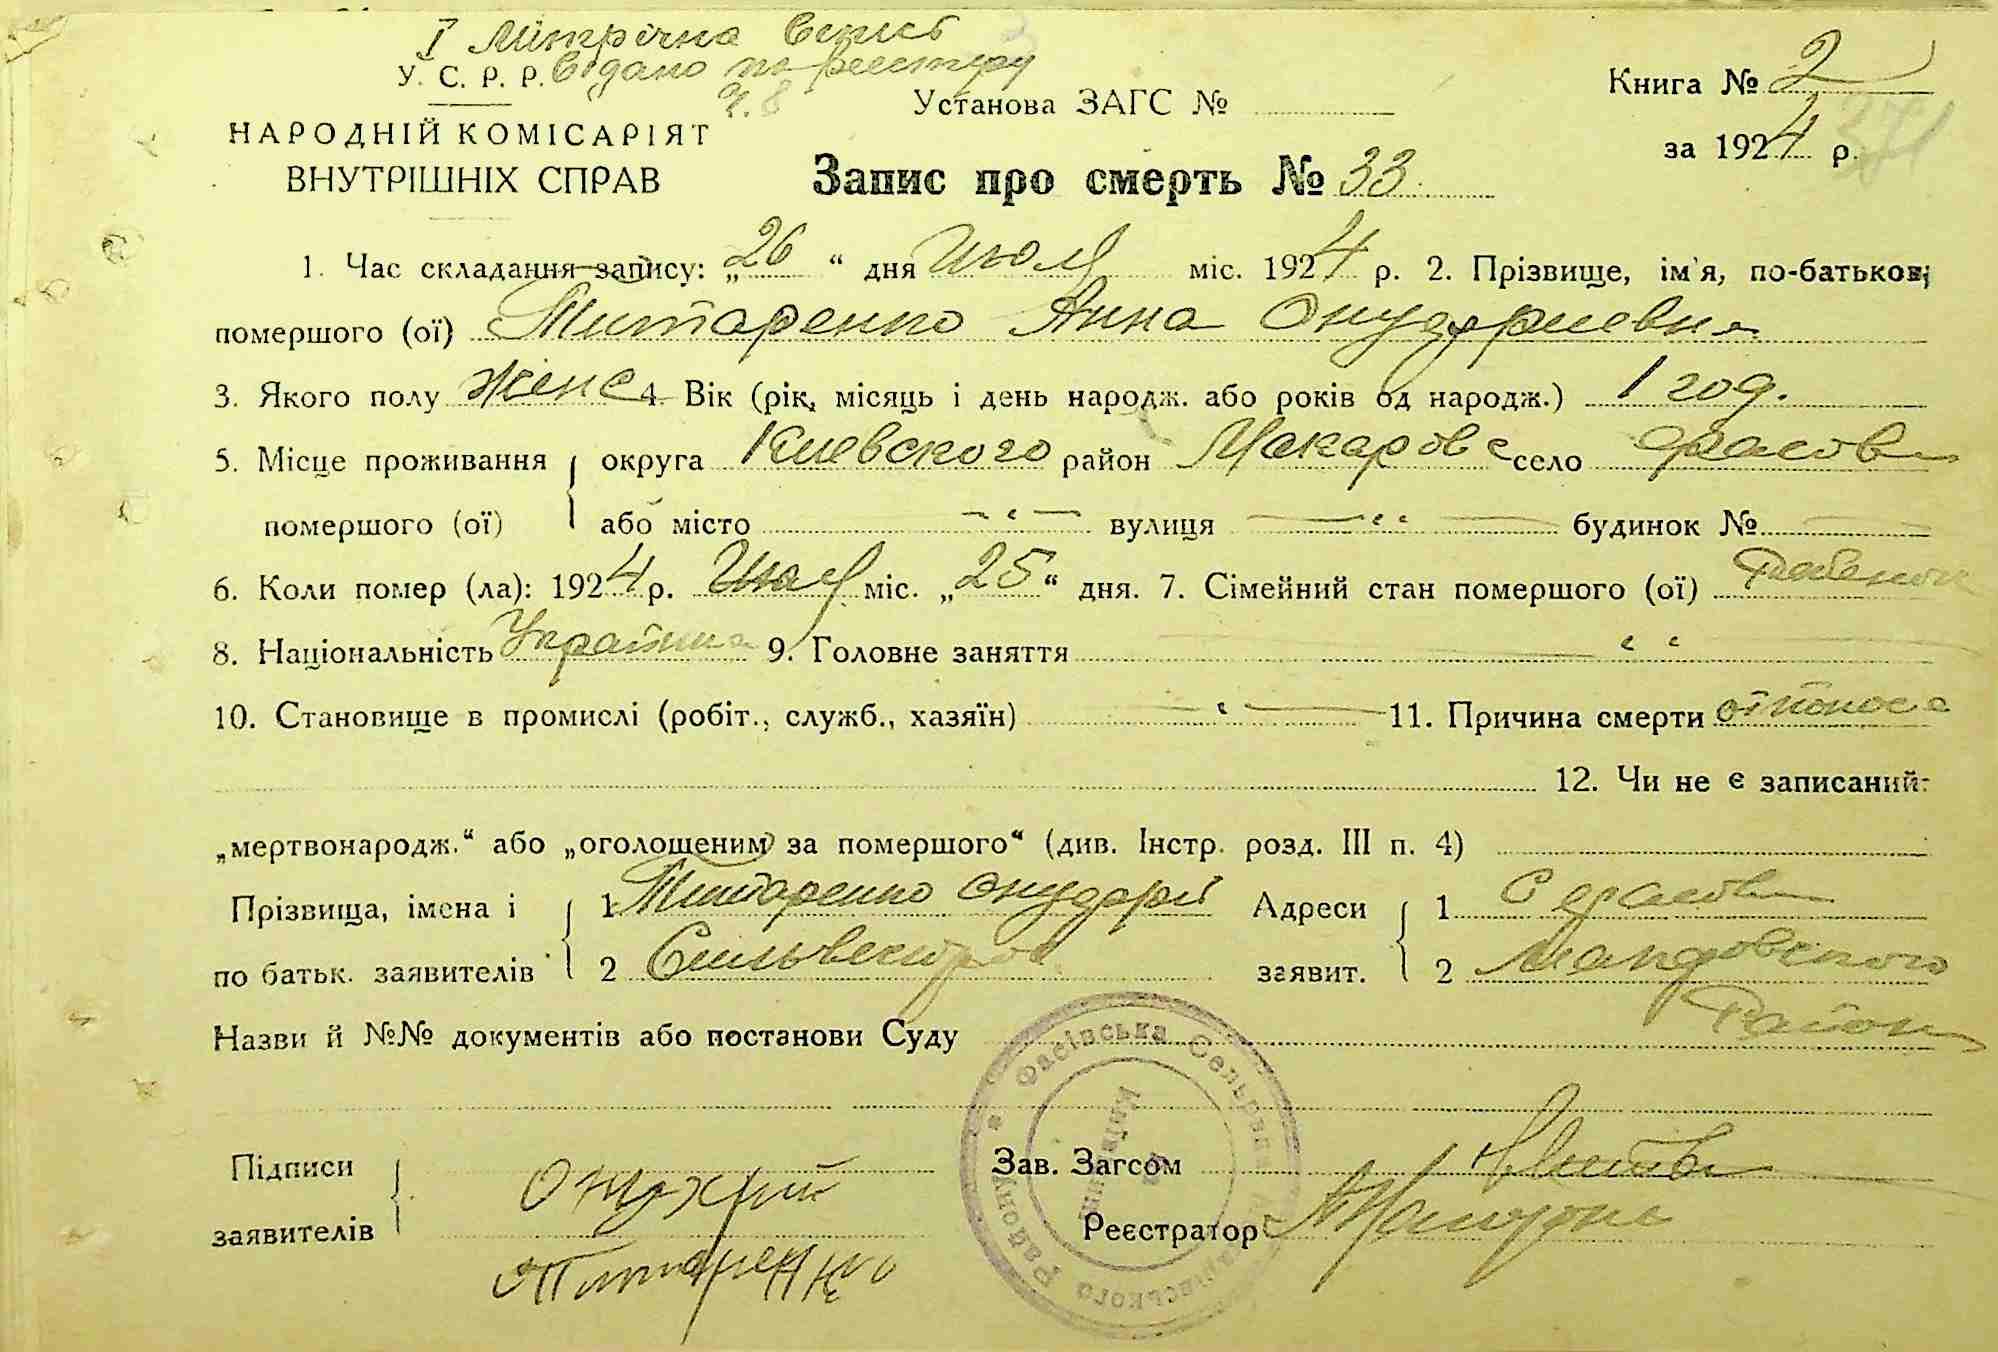 І Мітрічна Випись
У. С. Р. Р. Видано по реєстру
Ч. 8
Установа ЗАГС №
Книга № 2
за 1924 р.
371
НАРОДНІЙ КОМІСАРІЯТ
ВНУТРІШНІХ СПРАВ
Запис про смерть № 33
1. Час складання запису: „26“ дня Июля міс. 1924 р. 2. Прізвище, ім'я, по-батькові
помершого (ої) Титаренко Анна Онуфриевна
3. Якого полу женс 4. Вік (рік, місяць і день народж. або років од народж.) 1 год.
5. Місце проживання округа Киевского район Макаровс село Фасова
помершого (ої) або місто — " — вулиця — " — будинок № —
6. Коли помер (ла): 1924 р. Июля міс. „25“ дня. 7. Сімейний стан помершого (ої) Ребенок
8. Національність Украинка 9. Головне заняття — " —
10. Становище в промислі (робіт., служб., хазяїн) — " — 11. Причина смерти от поноса
12. Чи не є записаний:
„мертвонародж.“ або „оголошеним за помершого“ (див. Інстр. розд. III п. 4)
Прізвища, імена і 1 Титаренко Онуфрий Адреси 1 С Фасова
по батьк. заявителів 2 Сильвестров заявит. 2 Макаровского
Район
Назви й №№ документів або постанови Суду
Фасівська Сельрада Макарівського Району
на Київщині
Підписи Онухрий Зав. Загсом
заявителів Титаренко Реєстратор